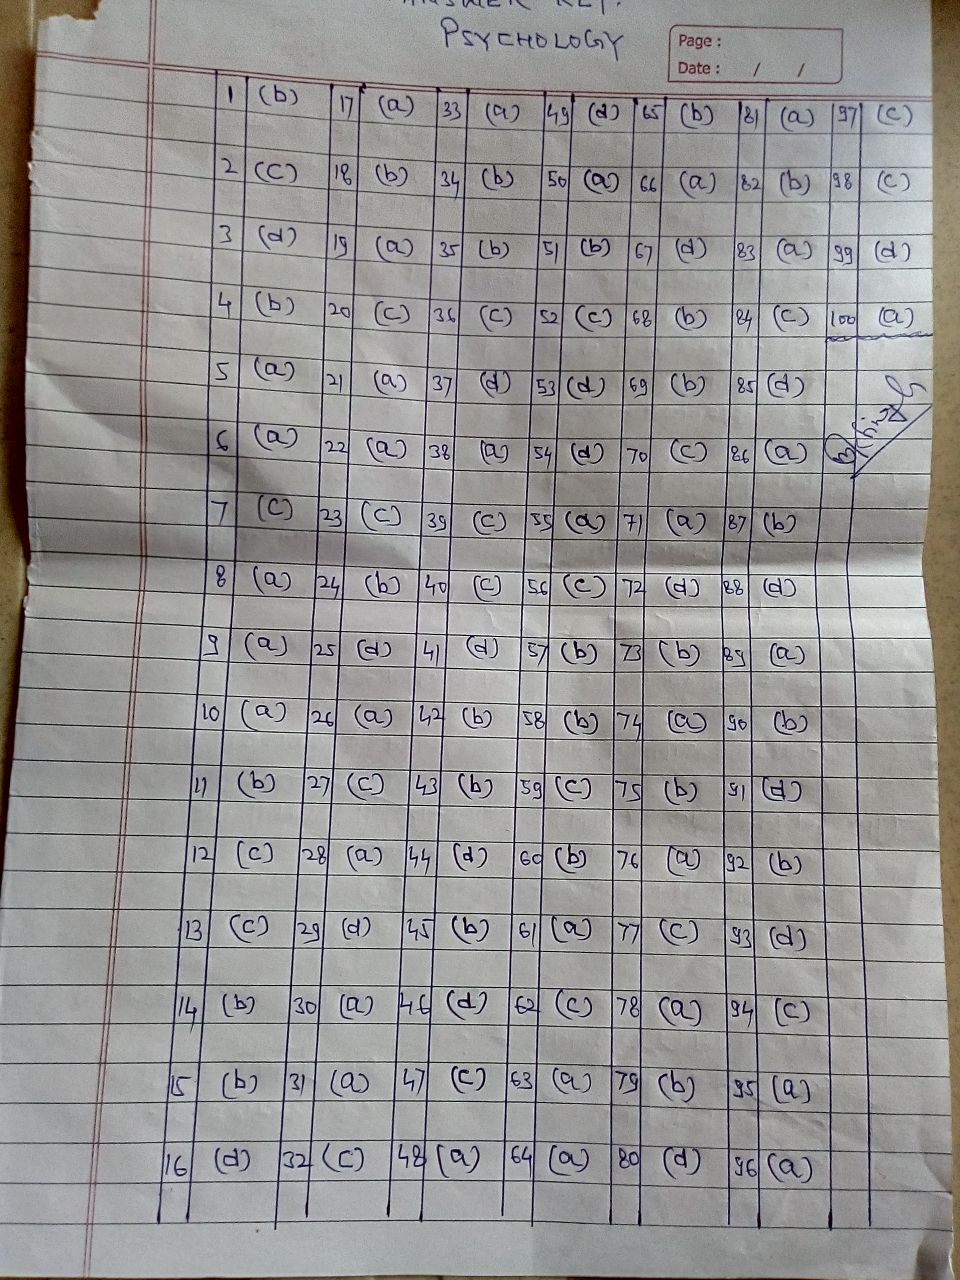 ANSWER KEY.
PSYCHOLOGY
Page :
Date : / /
1 (b) 17 (a) 33 (a) 49 (d) 65 (b) 81 (a) 97 (c)
2 (c) 18 (b) 34 (b) 50 (a) 66 (a) 82 (b) 98 (c)
3 (d) 19 (a) 35 (b) 51 (b) 67 (d) 83 (a) 99 (d)
4 (b) 20 (c) 36 (c) 52 (c) 68 (b) 84 (c) 100 (a)
5 (a) 21 (a) 37 (d) 53 (d) 69 (b) 85 (d)
6 (a) 22 (a) 38 (a) 54 (d) 70 (c) 86 (a)
7 (c) 23 (c) 39 (c) 55 (a) 71 (a) 87 (b)
8 (a) 24 (b) 40 (c) 56 (c) 72 (d) 88 (d)
9 (a) 25 (d) 41 (d) 57 (b) 73 (b) 89 (a)
10 (a) 26 (a) 42 (b) 58 (b) 74 (a) 90 (b)
11 (b) 27 (c) 43 (b) 59 (c) 75 (b) 91 (d)
12 (c) 28 (a) 44 (d) 60 (b) 76 (a) 92 (b)
13 (c) 29 (d) 45 (b) 61 (a) 77 (c) 93 (d)
14 (b) 30 (a) 46 (d) 62 (c) 78 (a) 94 (c)
15 (b) 31 (a) 47 (c) 63 (a) 79 (b) 95 (a)
16 (d) 32 (c) 48 (a) 64 (a) 80 (d) 96 (a)